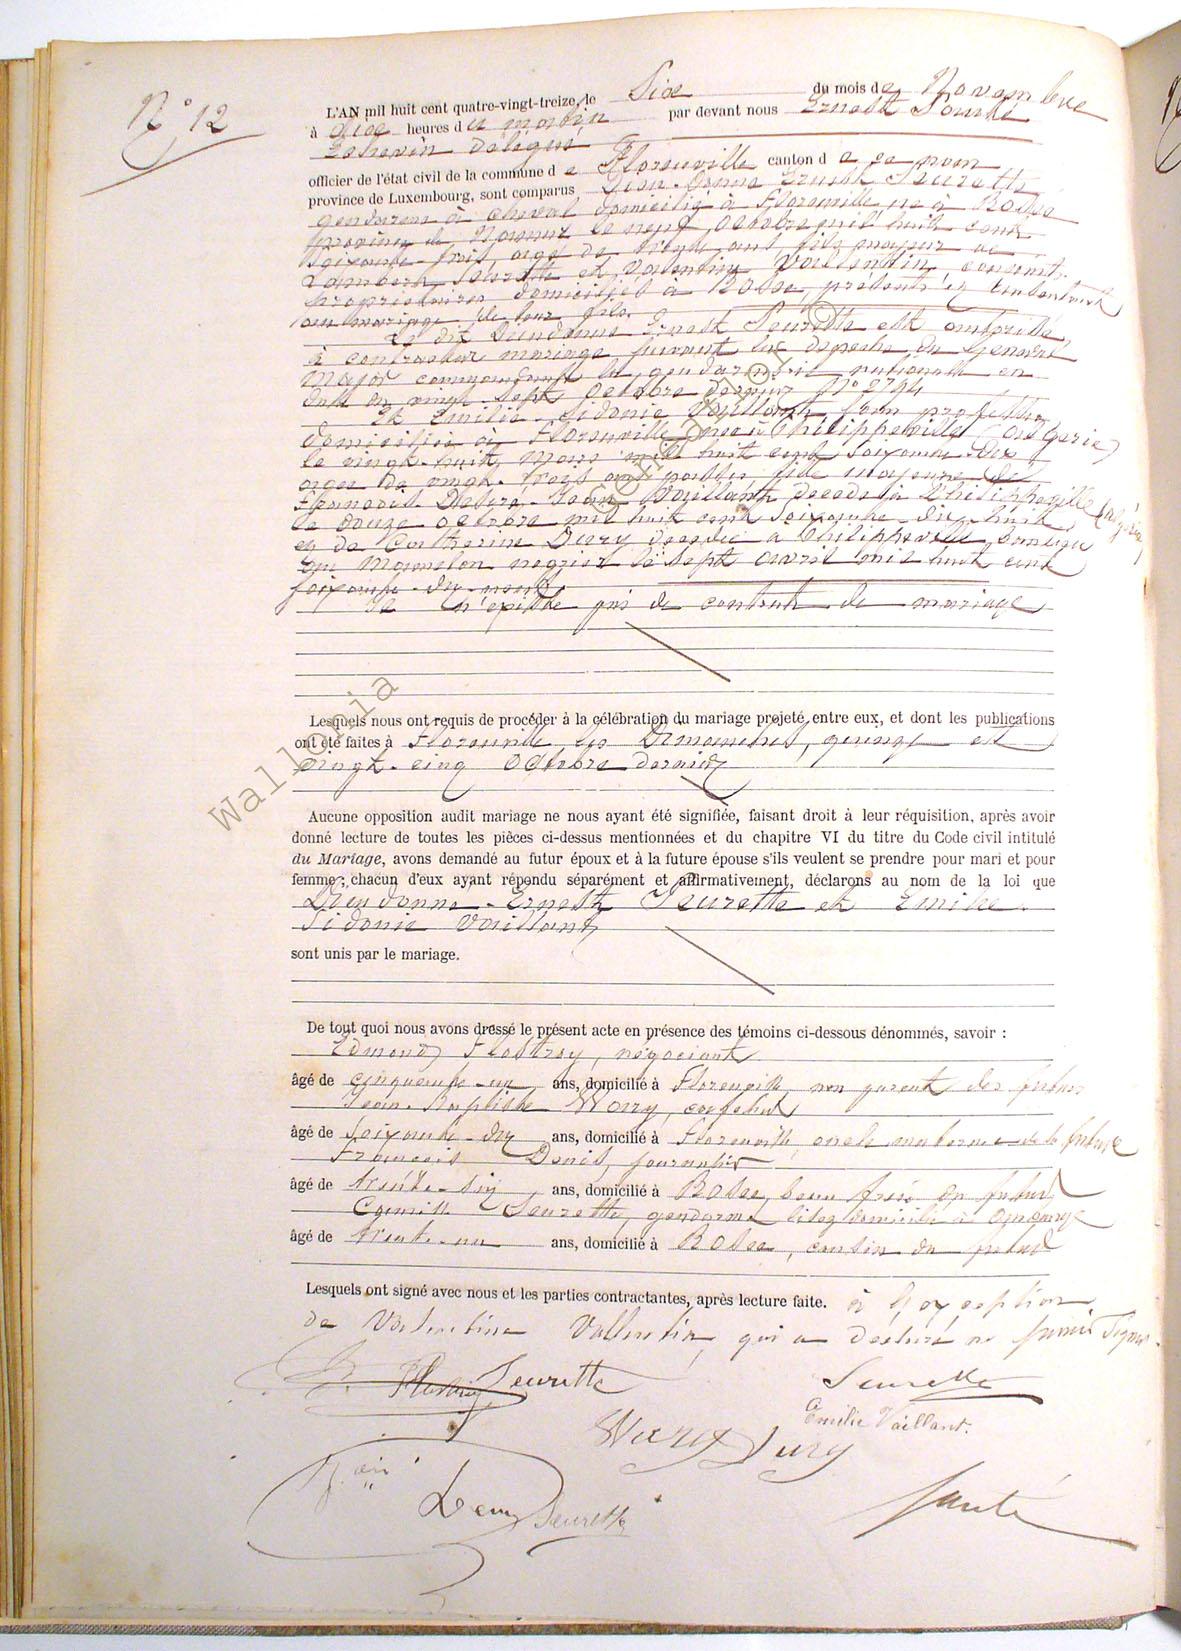 N° 12
L'AN mil huit cent quatre-vingt-treize, le Six du mois de Novembre
à dix heures du matin par devant nous Ernest
Echevin délégué
officier de l'état civil de la commune de Florenville canton de ce nom
province de Luxembourg, sont comparus Dieu-Donné Ernest Seurette
gendarme à cheval domicilié à Florenville né à
province de Namur le neuf octobre mil huit cent
soixante-trois, âgé de trente ans fils majeur de
Lambert Seurette et Valentine Vallentin, conjoints,
propriétaires domiciliés à présents et consentants
au mariage de leur fils.
Le dit Dieudonné Ernest Seurette est autorisé
à contracter mariage suivant la dépêche du Général
Major commandant la gendarmerie nationale en
date du vingt-sept Octobre dernier N° 2794
Et Emilie-Sidonie Vaillant, sans profession
domiciliée à Florenville née à Philippeville (Algérie)
le vingt-huit mars mil huit cent soixante-dix
âgée de vingt-trois ans passés, fille majeure de
François Désiré-Jean Vaillant décédé à Philippeville (Algérie)
le douze octobre mil huit cent soixante-dix-huit
et de Catherine Dury décédée à Philippeville, banlieue
mamelon négrier le sept avril mil huit cent
soixante-dix-neuf.
Il n'existe pas de contrat de mariage
Lesquels nous ont requis de procéder à la célébration du mariage projeté entre eux, et dont les publications
ont été faites à Florenville les Dimanches, quinze et
vingt-cinq Octobre dernier
Aucune opposition audit mariage ne nous ayant été signifiée, faisant droit à leur réquisition, après avoir
donné lecture de toutes les pièces ci-dessus mentionnées et du chapitre VI du titre du Code civil intitulé
du Mariage, avons demandé au futur époux et à la future épouse s'ils veulent se prendre pour mari et pour
femme; chacun d'eux ayant répondu séparément et affirmativement, déclarons au nom de la loi que
Dieudonné-Ernest Seurette et Emilie
Sidonie Vaillant
sont unis par le mariage.
De tout quoi nous avons dressé le présent acte en présence des témoins ci-dessous dénommés, savoir :
Edmond négociant
âgé de cinquante-un ans, domicilié à Florenville non parent des futurs
Jean-Baptiste
âgé de soixante-dix ans, domicilié à Florenville, oncle maternel de la future
François Denis, journalier
âgé de trente-six ans, domicilié à beau frère du futur
Camille Seurette, gendarme
âgé de trente-un ans, domicilié à cousin du futur
Lesquels ont signé avec nous et les parties contractantes, après lecture faite. à l'exception
de Valentine Vallentin qui a déclaré ne savoir signer
Seurette
Seurette
Emilie Vaillant.
Dury
Denis
Seurette
Wallonia
Genealogy ©